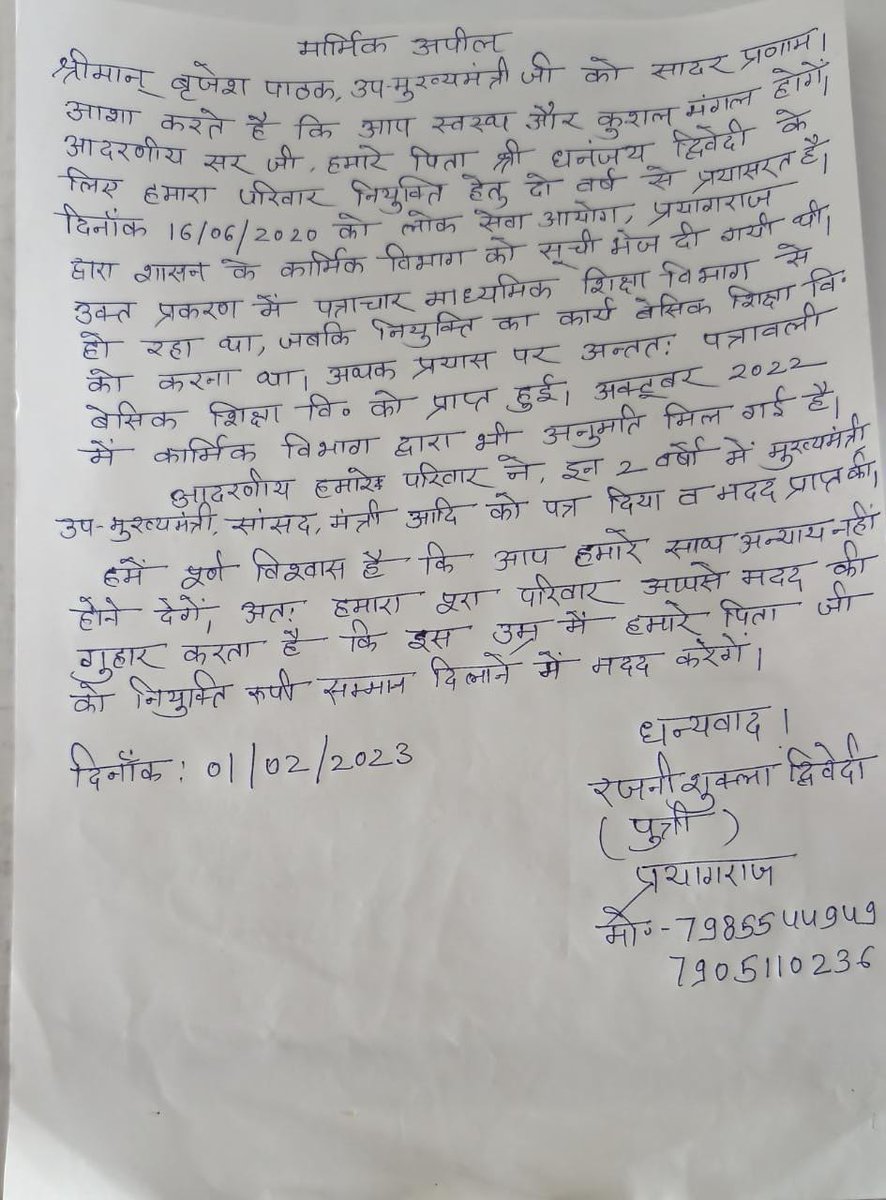 मार्मिक अपील
श्रीमान् बृजेश पाठक, उप-मुख्यमंत्री जी को सादर प्रणाम।
आशा करते है कि आप स्वस्थ और कुशल मंगल होगें।
आदरणीय सर जी, हमारे पिता श्री धनंजय द्विवेदी के
लिए हमारा परिवार नियुक्ति हेतु दो वर्ष से प्रयासरत है।
दिनाँक 16/06/2020 को लोक सेवा आयोग, प्रयागराज
द्वारा शासन के कार्मिक विभाग को सूची भेज दी गयी थी।
उक्त प्रकरण में पत्राचार माध्यमिक शिक्षा विभाग से
हो रहा था, जबकि नियुक्ति का कार्य बेसिक शिक्षा वि॰
को करना था। अथक प्रयास पर अन्ततः पत्रावली
बेसिक शिक्षा वि॰ को प्राप्त हुई। अक्टूबर 2022
में कार्मिक विभाग द्वारा भी अनुमति मिल गई है।
आदरणीय हमारे परिवार ने, इन 2 वर्षो में मुख्यमंत्री
उप-मुख्यमंत्री, सांसद, मंत्री आदि को पत्र दिया व मदद प्राप्त की,
हमें पूर्ण विश्वास है कि आप हमारे साथ अन्याय नहीं
होने देगें, अतः हमारा पूरा परिवार आपसे मदद की
गुहार करता है कि इस उम्र में हमारे पिता जी
को नियुक्ति रूपी सम्मान दिलाने में मदद करेगें।
धन्यवाद।
दिनाँक: 01/02/2023
रजनी शुक्ला द्विवेदी
(पुत्री)
प्रयागराज
मो॰- 7985544949
7905110236